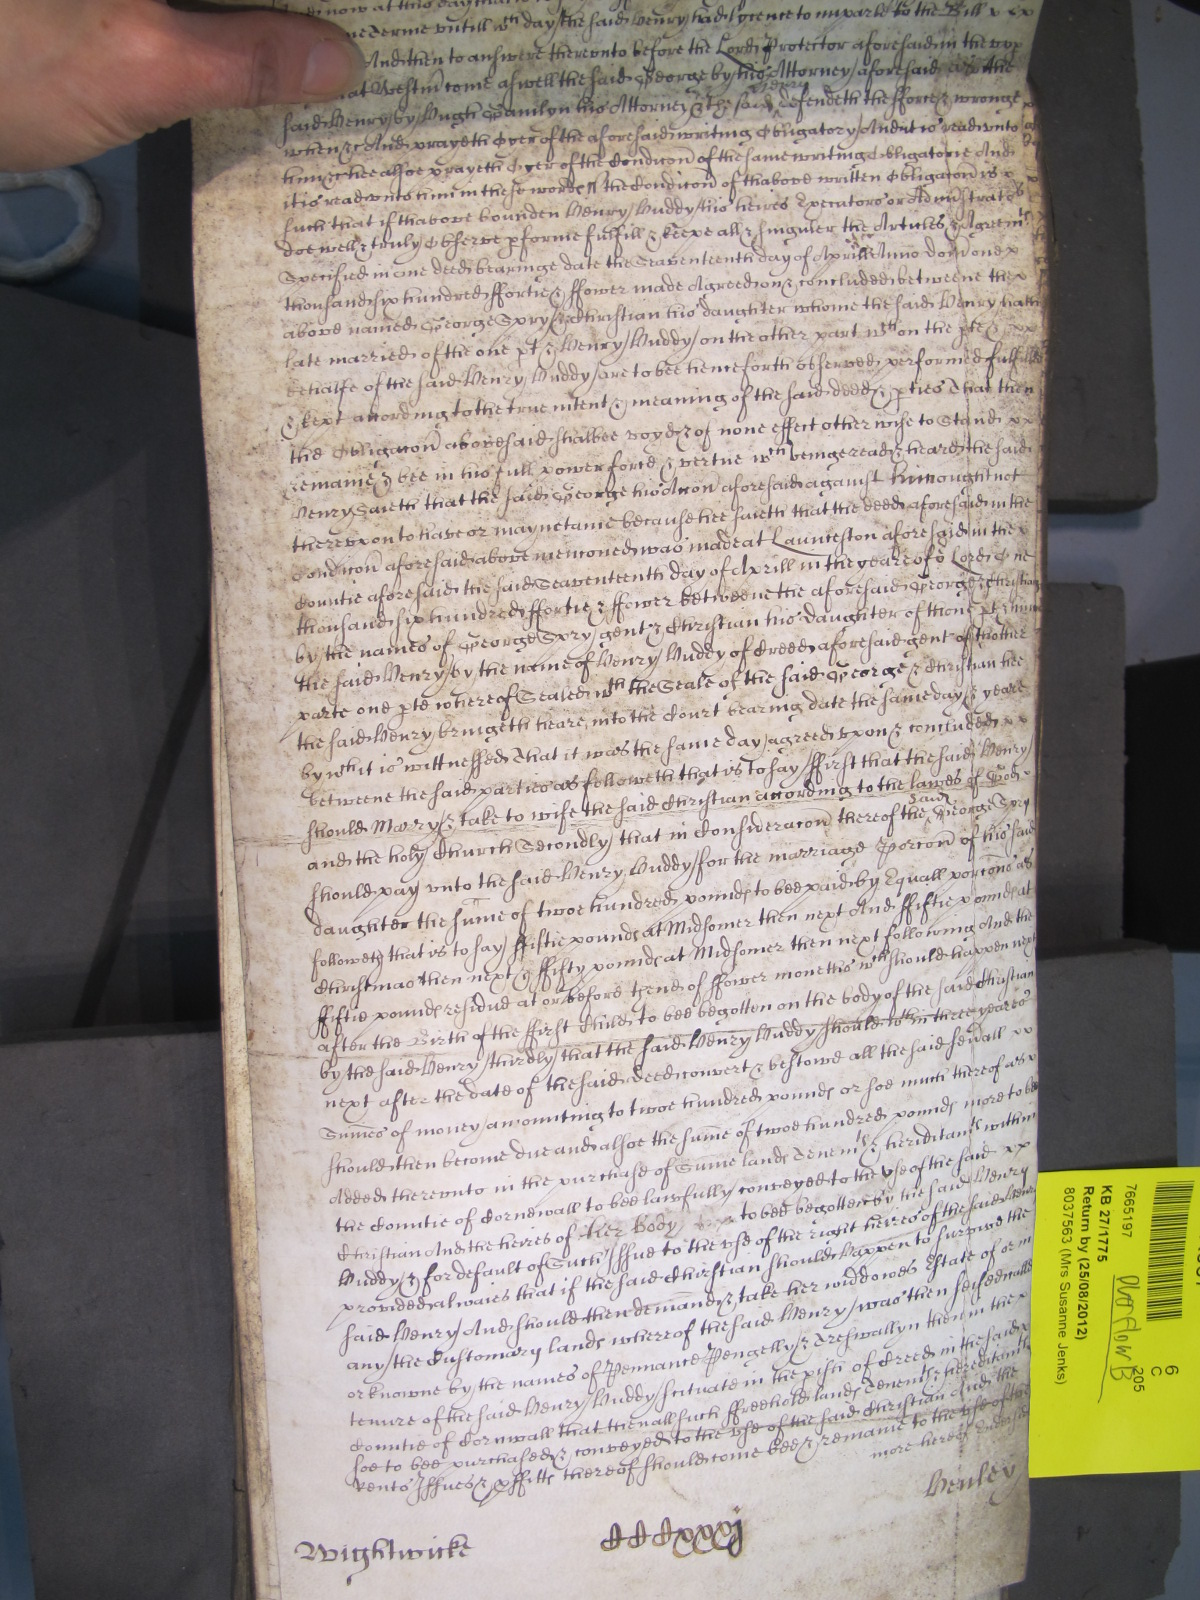 now at this day that is
same terme untill wch day the said Henry had lycence to imparle to the Bill x xx
And then to answere thereunto before the Lord Protector aforesaid in the upp
at Westm come aswell the said George by his Attorney aforesaid as the
said Henry by Hugh Hamlyn his Attorney & the said Henry defendeth the fforce & wronge
when &c And prayeth Oyer of the aforesaid writing Obligatory And it is read unto
him &c hee alsoe prayeth Oyer of the Condicon of the same writing Obligatorie And
it is read unto him in these words The Condicon of thabove written Obligacon is x
such that if thabove bounden Henry Huddy his heires Executors or Administrators
doe well & truly Observe pforme fulfill & keepe all & singuler the Articles & Agreemts
Specified in one deed bearinge date the Seaventeenth day of Aprill Anno dom one x
thousand six hundred ffortie & ffower made Agreed on & concluded betweene the x
above named George Spry & Christian his daughter whome the said Henry hath
late married of the one pt & Henry Huddy on the other part wch on the pte &
behalfe of the said Henry Huddy are to bee henceforth observed performed fulfilled
& kept according to the true intent & meaning of the said deed & pties That then
the Obligacon abovesaid shalbee voyd & of none effect other wise to Stand xx
remaine & bee in his full power force & vertue wch beinge read & heard the said
Henry Saieth that the said George his Accon aforesaid against him ought not
thereupon to have or maynetaine because hee saieth that the deed aforesaid in the
Condicon aforesaid above mencioned was made at Launceston aforesaid in the x
Countie aforesaid the said Seaventeenth day of Aprill in the yeare of o Lord One
thousand six hundred ffortie & ffower betweene the aforesaid George & Christian
by the names of George Spry gent & Christian his daughter of thone pt &
the said Henry by the name of Henry Huddy of Creed aforesaid gent of thother
parte one pte whereof Sealed wth the Seale of the said George & Christian hee
the said Henry bringeth heare into the Court bearing date the same day & yeare
by wch it is wittnessed That it was the same day agreed upon & concluded xx
betweene the said parties as followeth that is to say ffirst that the said Henry
should Marry & take to wife the said Christian according to the lawes of God x
and the holy Church Secondly that in Consideracon thereof the said George Spry
should pay unto the said Henry Huddy for the marriage Porcon of his said
daughter the sume of twoe hundred pounds to bee paid by Equall porcons as
followeth that is to say ffiftie pounds at Midsomer then next And ffiftie pounds at
Christmas then next & ffifty pounds at Midsomer then next following And the
ffiftie pounds residue at or before thend of ffower moneths wch should happen next
after the Birth of the ffirst Child to bee begotten on the body of the said Christian
by the said Henry thirdly that the said Henry Huddy should wthin three yeares
next after the date of the said deed convert & bestowe all the said severall xx
Sumes of money amounting to twoe hundred pounds or soe much thereof as x
should then become due and alsoe the sume of twoe hundred pounds more to bee
Added thereunto in the purchase of Some lands Tenemts & hereditamts within
the Countie of Cornewall to bee lawfully conveyed to the Use of the said xx
Christian And the heires of her Body to bee begotten by the said Henry
Huddy & for default of Such Issue to the use of the right heires of the said Henry
provided alwaies that if the said Christian should happen to survive the
said Henry And should then demand & take her widdowes Estate of or in
any the Customary lands whereof the said Henry was then seised called
or knowne by the names of Pennance Pengelly & Treswallyn then in the x
tenure of the said Henry Huddy scituate in the pish of Creed in the said x
Countie of Cornwall that then all such ffreehold lands Tenemts & hereditamts
soe to bee purchased & conveyed to the use of the said Christian And the
rents Issues & pffitts thereof should come bee & remaine to the use of the
more heres
Henley
Wightwicke
CCCxxxj
7665197
KB 27/1775
Return by (25/08/2012)
8037563 (Mrs Susanne Jenks)
Overflow B
6
C
205